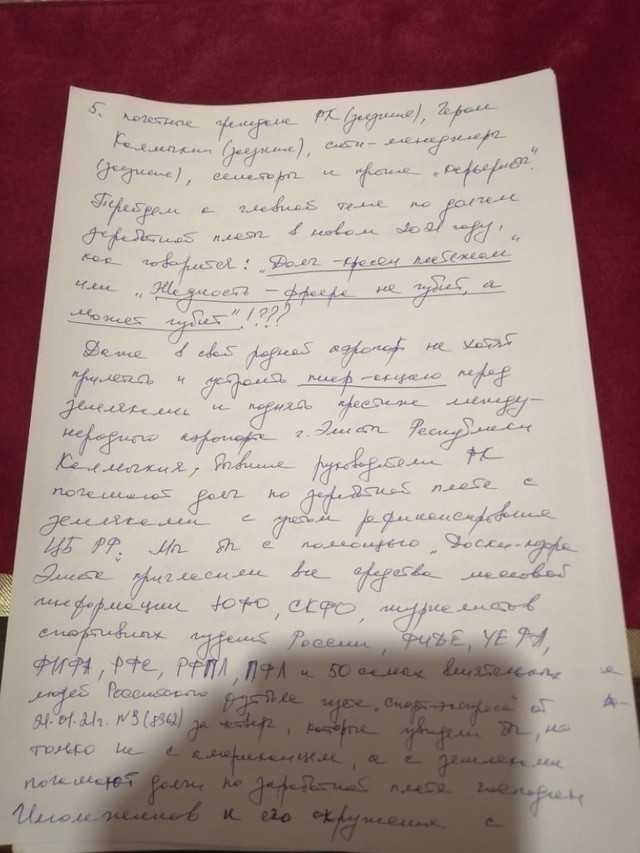 5. почетные граждане РК (заезжие), Герои
Калмыкии (заезжие), сити-менеджеры
(заезжие), сенаторы и прочие „карьеристы".
Перейдем к главной теме по долгам
заработной платы в новом 2021 году,
как говорится: „Долг - красен платежом"
или „Жадность - фраера не губит, а
может губит"!???
Даже в свой родной аэропорт не хотят
прилететь и устроить пиар-акцию перед
земляками и поднять престиж между-
народного аэропорта г. Элисты Республики
Калмыкия, бывшие руководители РК
погашают долг по заработной плате с
земляками с учетом рефинансирования
ЦБ РФ. Мы бы с помощью „Доски-
Элиста" пригласили все средства массовой
информации ЮФО, СКФО, журналистов
спортивных газет России, ФИДЕ, УЕФА,
ФИФА, РФС, РФПЛ, ПФЛ и 50 самых влиятельных
людей Российского футбола газ. „Спорт-экспресс" от
21.01.21г. №9(8362) за четверг, которые увидели бы, но
только не с американцем, а с земляками
погашают долги по заработной плате господин
Илюмжинов и его окружения с